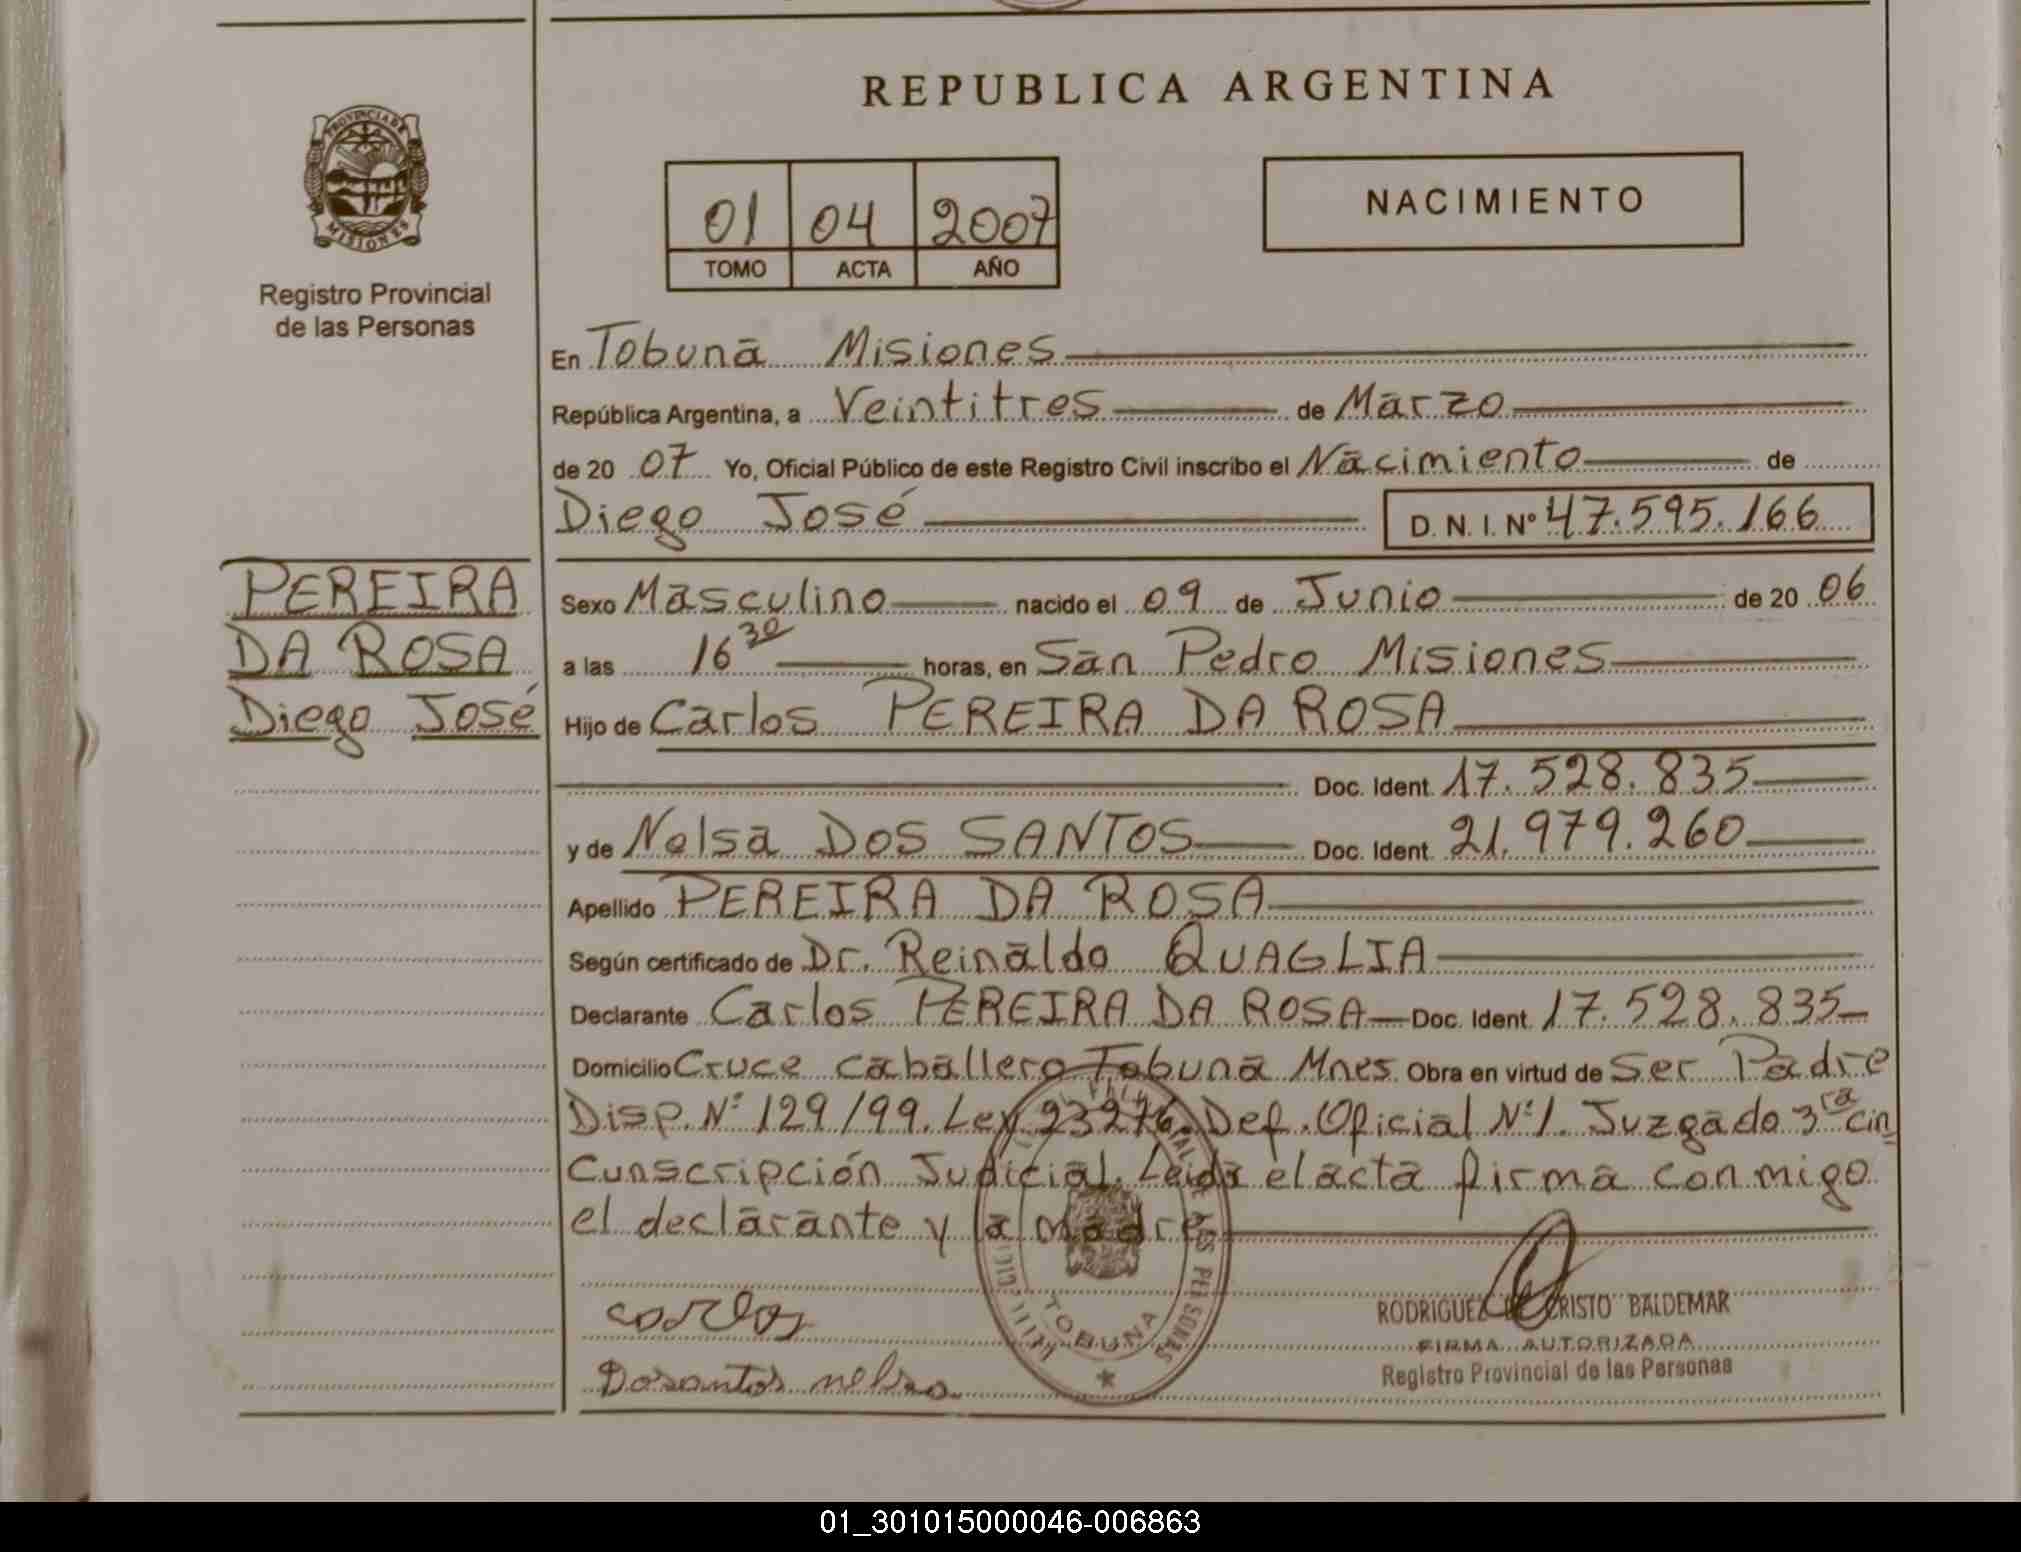 REPUBLICA ARGENTINA
PROVINCIA DE
MISIONES
Registro Provincial
de las Personas
01 04 2007
TOMO ACTA AÑO
NACIMIENTO
En Tobuna Misiones
República Argentina, a Veintitres de Marzo
de 20 07 Yo, Oficial Público de este Registro Civil inscribo el Nacimiento de
Diego José D. N. I. Nº 47.595.166
PEREIRA
DA ROSA
Diego José
Sexo Masculino nacido el 09 de Junio de 20 06
a las 16 30 horas, en San Pedro Misiones
Hijo de Carlos PEREIRA DA ROSA
Doc. Ident. 17.528.835
y de Nelsa DOS SANTOS Doc. Ident. 21.979.260
Apellido PEREIRA DA ROSA
Según certificado de Dr. Reinaldo QUAGLIA
Declarante Carlos PEREIRA DA ROSA Doc. Ident. 17.528.835
Domicilio Cruce Caballero Tobuna Mnes. Obra en virtud de Ser Padre
Disp. Nº 129/99. Ley 23276. Def. Oficial Nº 1. Juzgado 3ra Cin
Cunscripción Judicial. Leida el acta firma conmigo
el declarante y la madre
Carlos
Dosantos nelsa
LAS PERSONAS
TOBUNA
RODRIGUEZ DE CRISTO BALDEMAR
FIRMA AUTORIZADA
Registro Provincial de las Personas
01_301015000046-006863